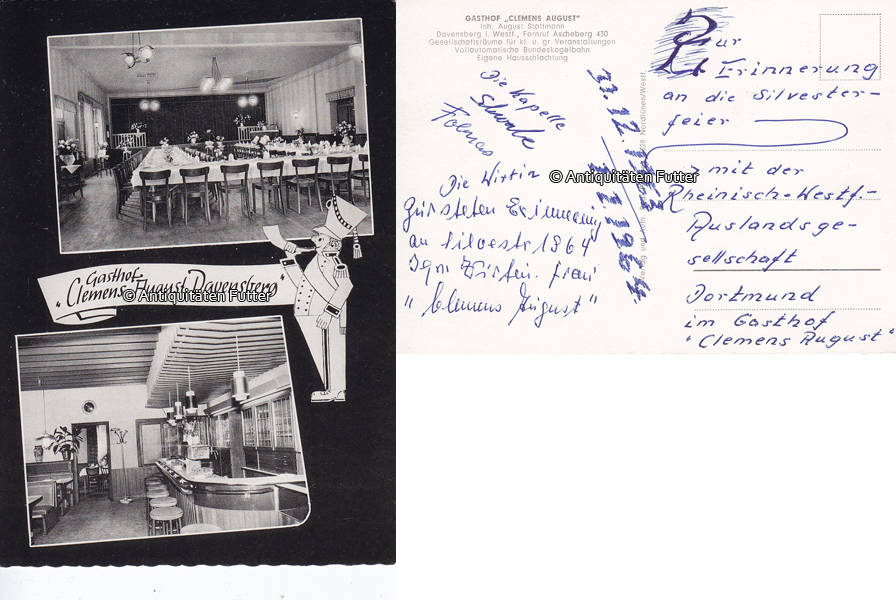 Gasthof
"Clemens August" Davensberg
© Antiquitäten Futter
GASTHOF „CLEMENS AUGUST"
Inh. August Stattmann
Davensberg i. Westf., Fernruf Ascheberg 430
Gesellschaftsräume für kl. u. gr. Veranstaltungen
Vollautomatische Bundeskegelbahn
Eigene Hausschlachtung
Die Kapelle
Die Wirtin
an Silvester 1964
"Clemens August"
31.12.1963
1.1.1964
Nordlünen/Westf.
© Antiquitäten Futter
Zur
Erinnerung
an die Silvester-
feier
mit der
Rheinisch-Westf.-
Auslandsge-
sellschaft
Dortmund
im Gasthof
"Clemens August"